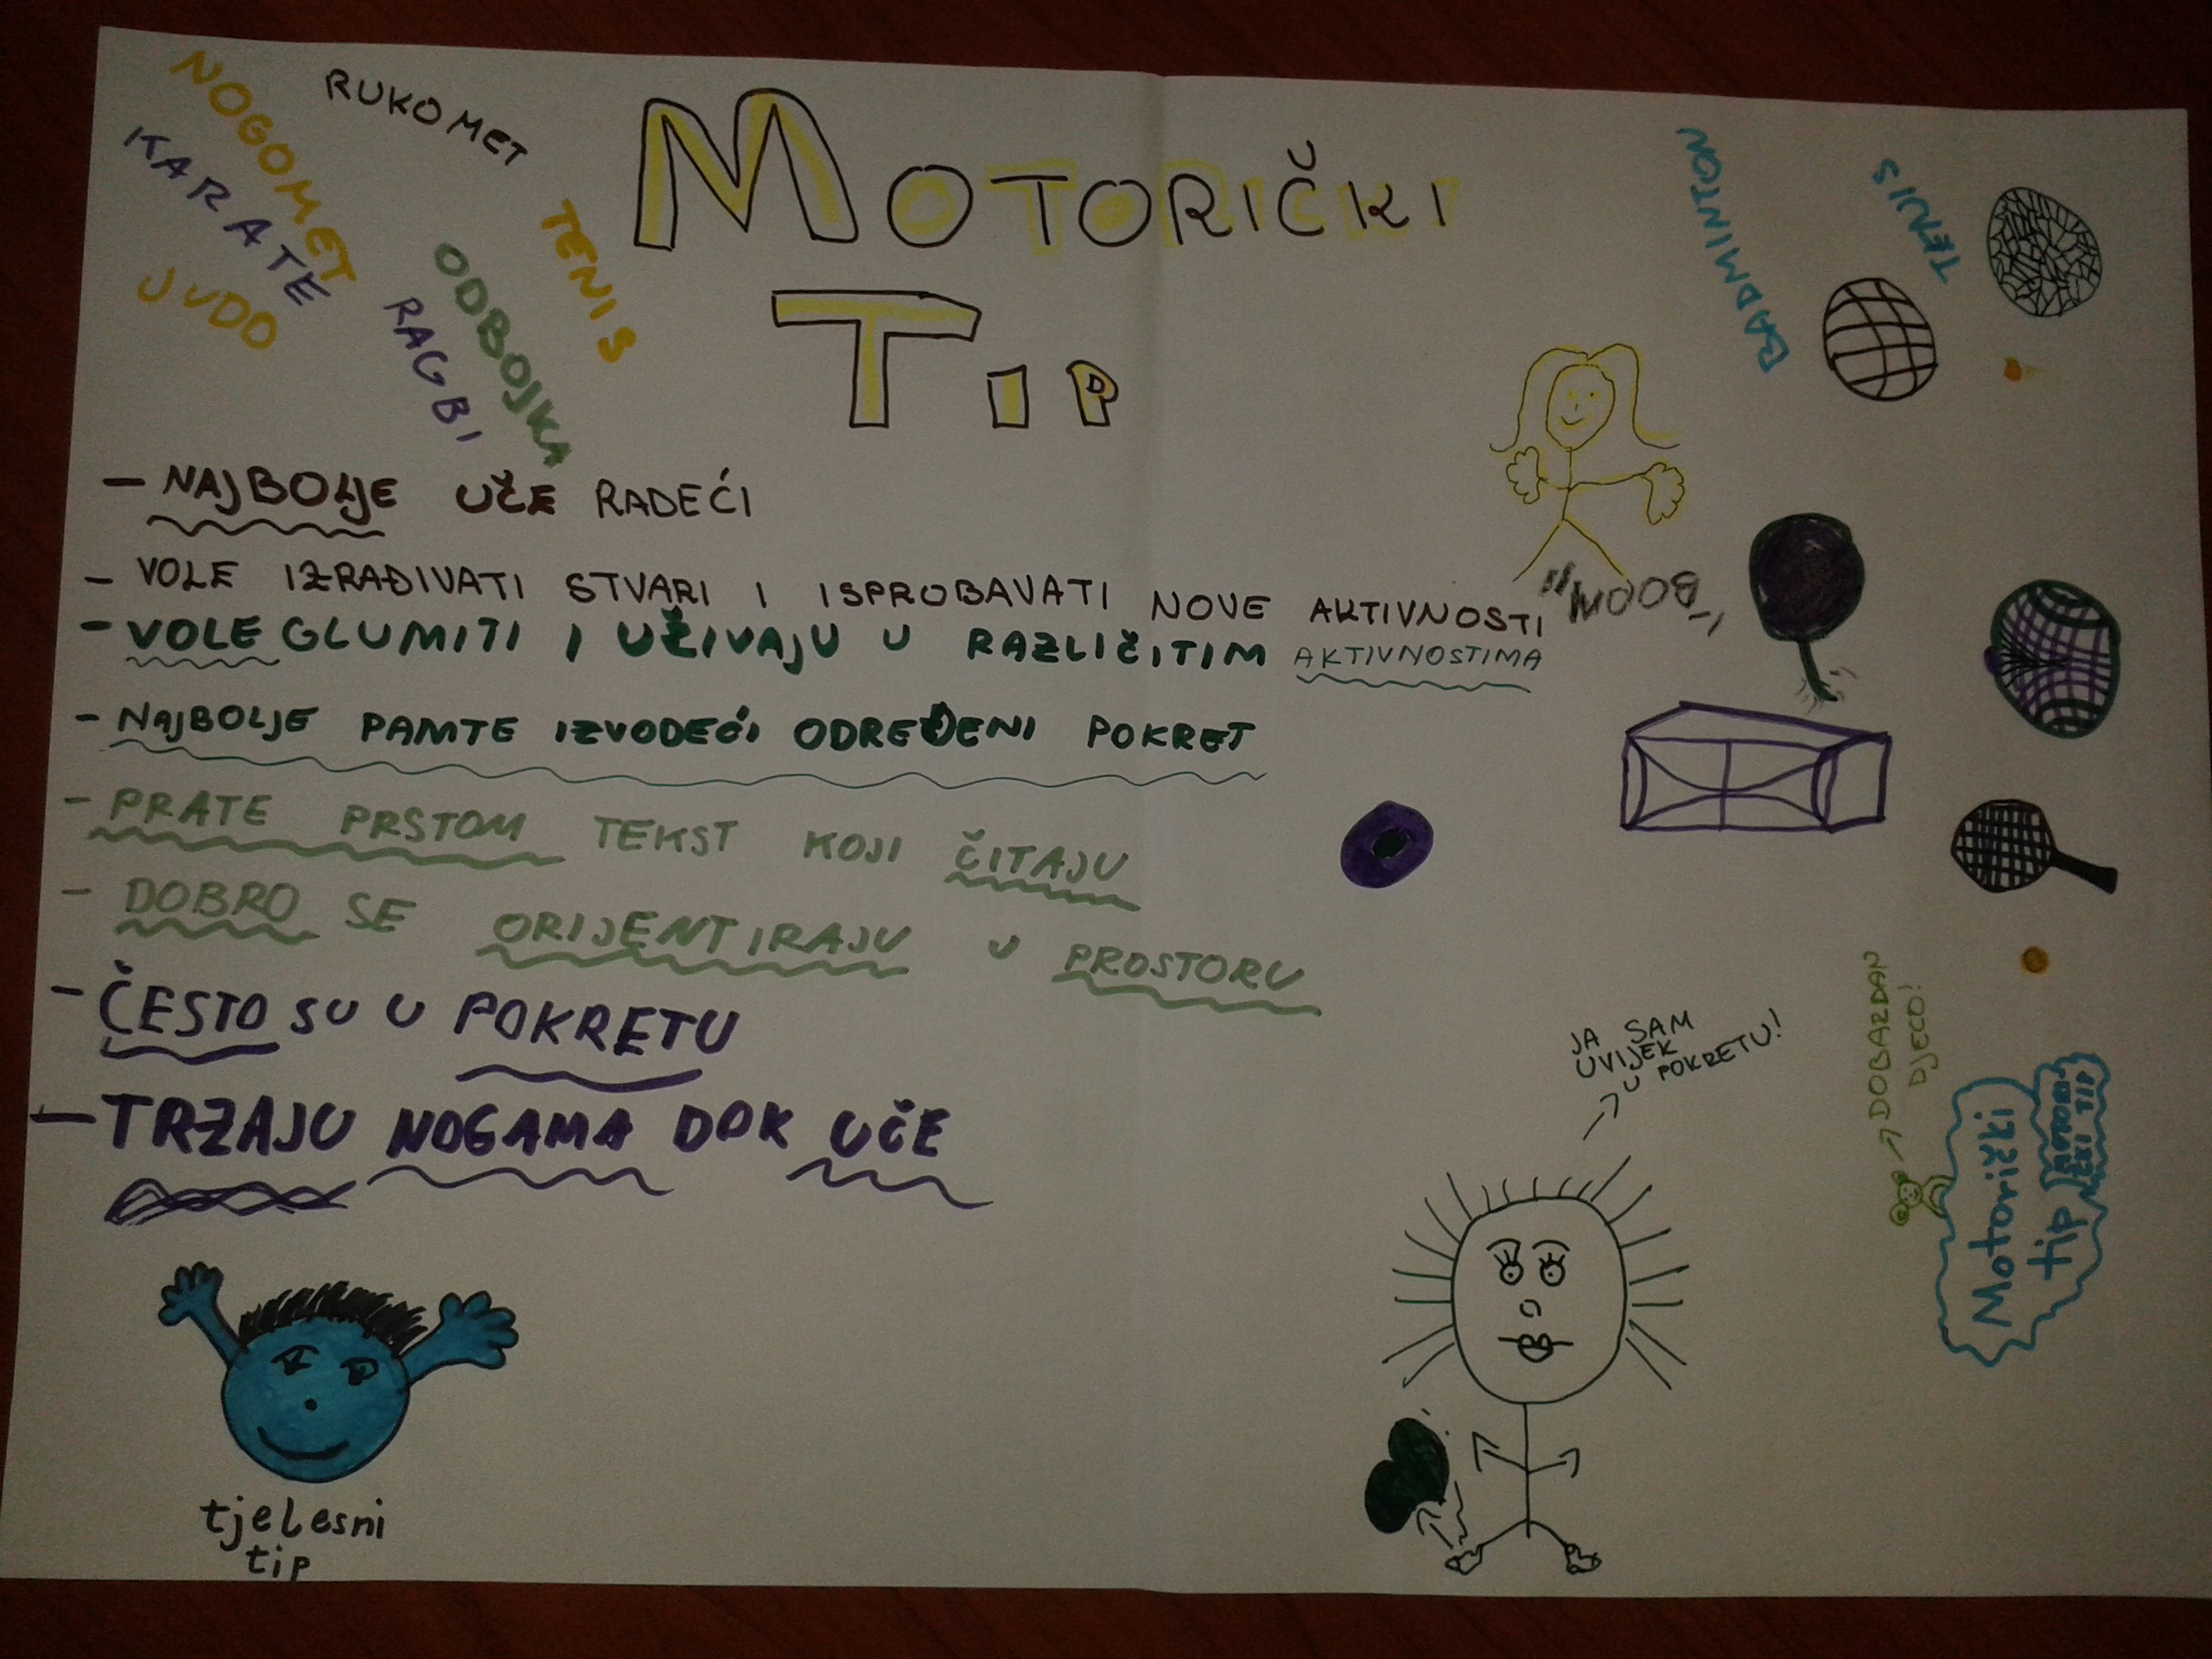 NOGOMET
RUKOMET
KARATE
JUDO
TENIS
ODBOJKA
RAGBI
MOTORIČKI
TIP
BADMINTON
TENIS
- NAJBOLJE UČE RADEĆI
- VOLE IZRAĐIVATI STVARI I ISPROBAVATI NOVE AKTIVNOSTI
"BOOM"
- VOLE GLUMITI I UŽIVAJU U RAZLIČITIM AKTIVNOSTIMA
- NAJBOLJE PAMTE IZVODEĆI ODREĐENI POKRET
- PRATE PRSTOM TEKST KOJI ČITAJU
- DOBRO SE ORIJENTIRAJU U PROSTORU
- ČESTO SU U POKRETU
- TRZAJU NOGAMA DOK UČE
JA SAM
UVIJEK
U POKRETU!
DOBAR DAN
DJECO!
Motorički
tip
MOTORI-
ČKI TIP
tjelesni
tip